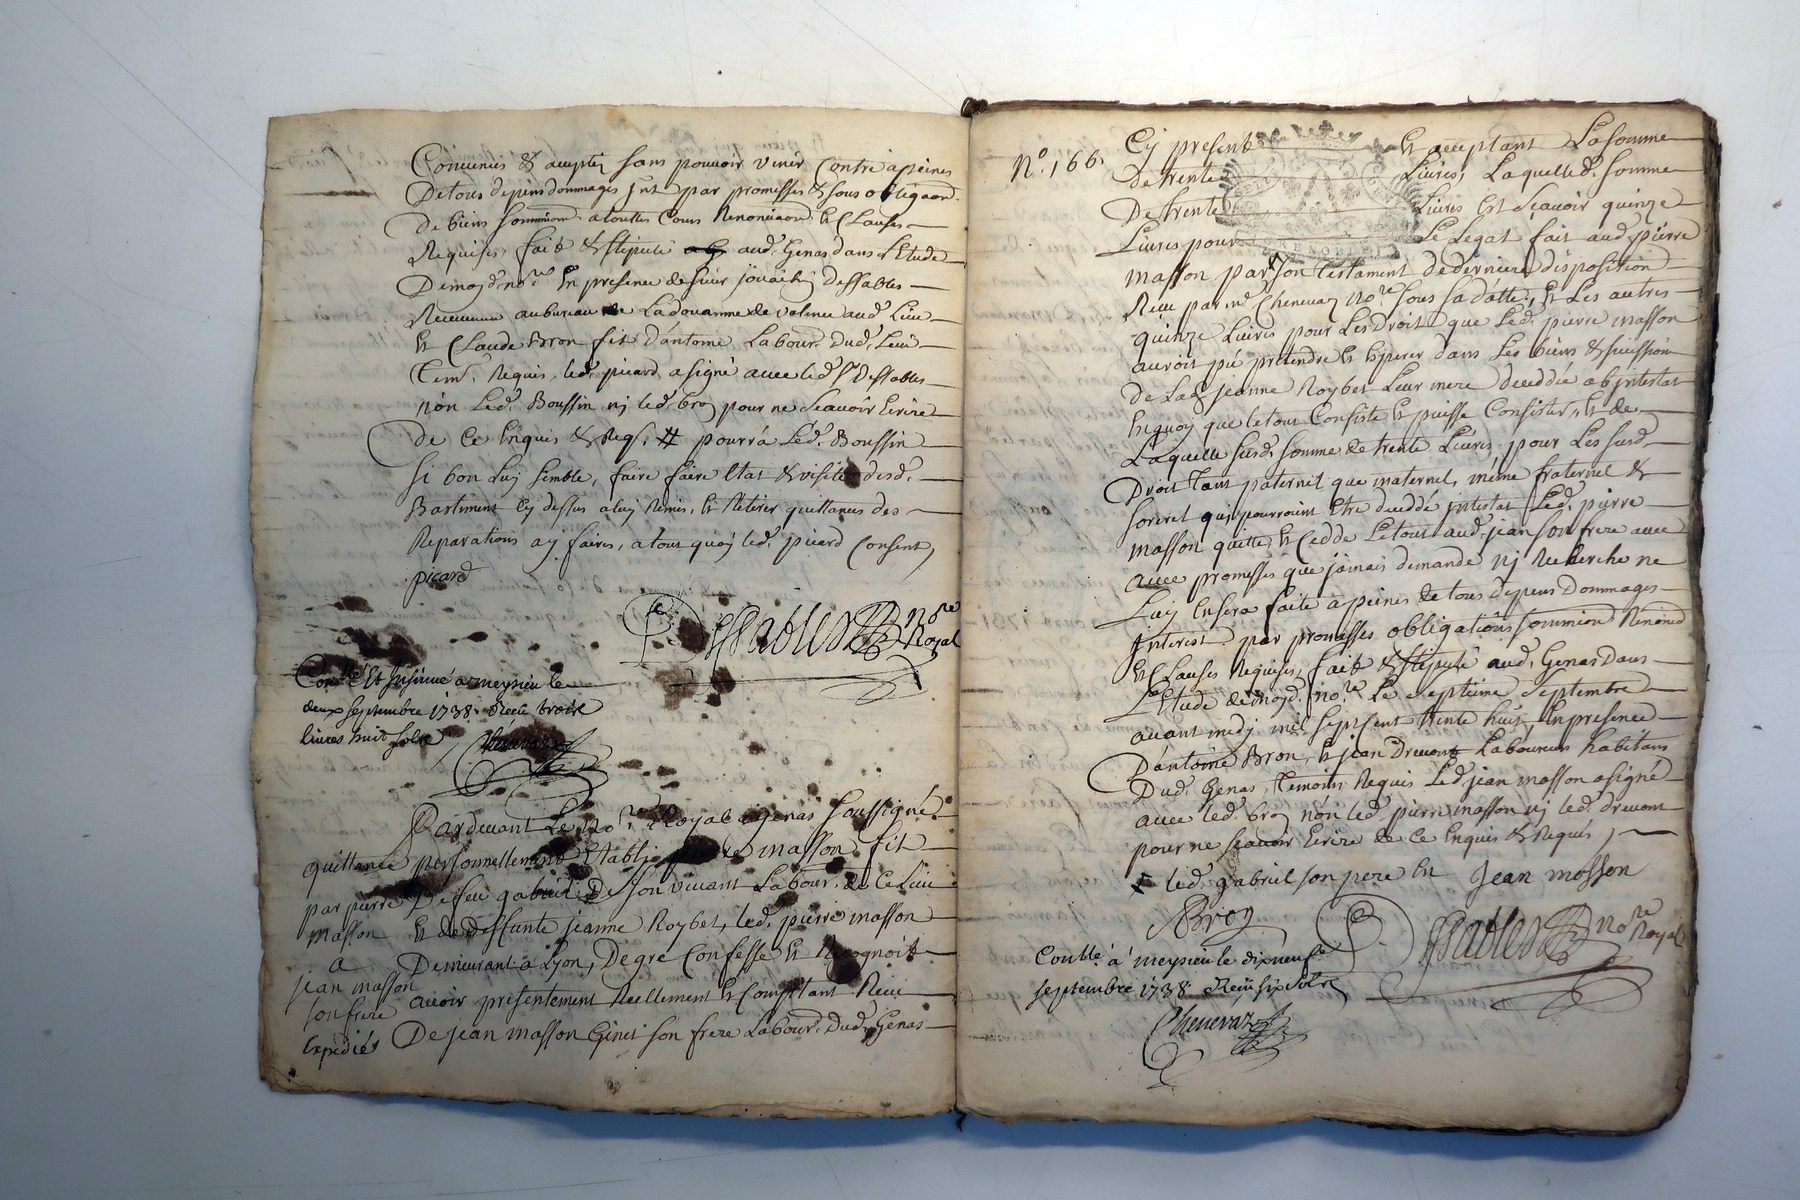 Convenies & acceptés sans pouvoir venir Contre apeines
De tous depens dommages jnt par promesses & sous obligaon
De biens sommission atouttes Cours Renonciaon Et Clauses
Requises, fait & stipulé aud. Genas dans L'Etude
De moyd. nore En presence de sieur joüachin dessables
Receveur au bureau de La doüanne de valence aud. Lieu
Et Claude Bron fils d'antoine Labour. dud. Lieu
Tem. Requis, led. picard a signé avec led. Sr Dessables
nôn Led. Boussin nj led. broy pour ne sçavoir Ecrire
De Ce Enquis & Reqs. # pourrà Led. Boussin
si bon Luy semble, faire faire Etat & visitte desd.
Bastiment Cy dessus a luy Remis, Et Retirer quittances des
Reparations ay faires, a tout quoy led. picard Consent,
picard
Dessables nore Royal
Conllé Et Insinué a meyzieu le
deux septembre 1738. Reçû treize
livres huit sols
Chenevaz
Pardevant Le nore Royal a genas soussigné
quittance personnellement Etablj pierre masson fils
par pierre De feu gabriel De son vivant Labour. de Ce Lieu
masson Et de deffunte jeanne Roybet, led. pierre masson
a Demeurant a Lyon, De gré Confesse Et Recognoit
jean masson avoir presentement Reellement Et Comptant Reçu
son frere De jean masson Ginet son frere Labour. Dud. Genas
Expediés
No. 166.
Cy present Et acceptant La somme
De trente Livres, Laquelle d. somme
De trente Livres Est Sçavoir quinze
Livres pour Le Legat fait aud. pierre
masson par son testament de derniere disposition
Reçu par me Chenevaz nore sous sa datte, Et Les autres
quinze Livres pour Les Droits que Led. pierre masson
auroit pû pretendre Et Esperer dans Les biens & succession
de Lad. jeanne Roybet Leur mere decedée abjntestat
Enquoy que le tout Consiste Et puisse Consister, Et de
Laquelle susd. somme de trente Livres, pour Les susd.
Droits tant paternel que maternel, même fraternel &
sororel qui pourroint Etre decedé jntestat Led. pierre
masson quitte, Et Cedde Le tout aud. jean son frere avec
avec promesses que jamais demande nj Recherche ne
Luy En sera faite a peines de tous depens Dommages
Interest par promesses obligations sommission Renonciaon
Et Clauses Requises, fait & stipulé aud. Genas Dans
L'Etude de moyd. nore Le septieme Septembre
avant midy mil sept Cent trente huit En presence
D'antoine Bron, Et jean Drevon Laboureurs habitans
Dud. Genas, temoins Requis Led. jean masson a signé
avec led. broy nôn led. pierre masson nj led. drevon
pour ne sçavoir Ecrire de Ce Enquis & Requis,
led. gabriel son pere Et Jean mosson
Broy
Dessables nore Royal
Conllé. à meyzieu le dix neufe
septembre 1738. Reçû six sols
Chenevaz